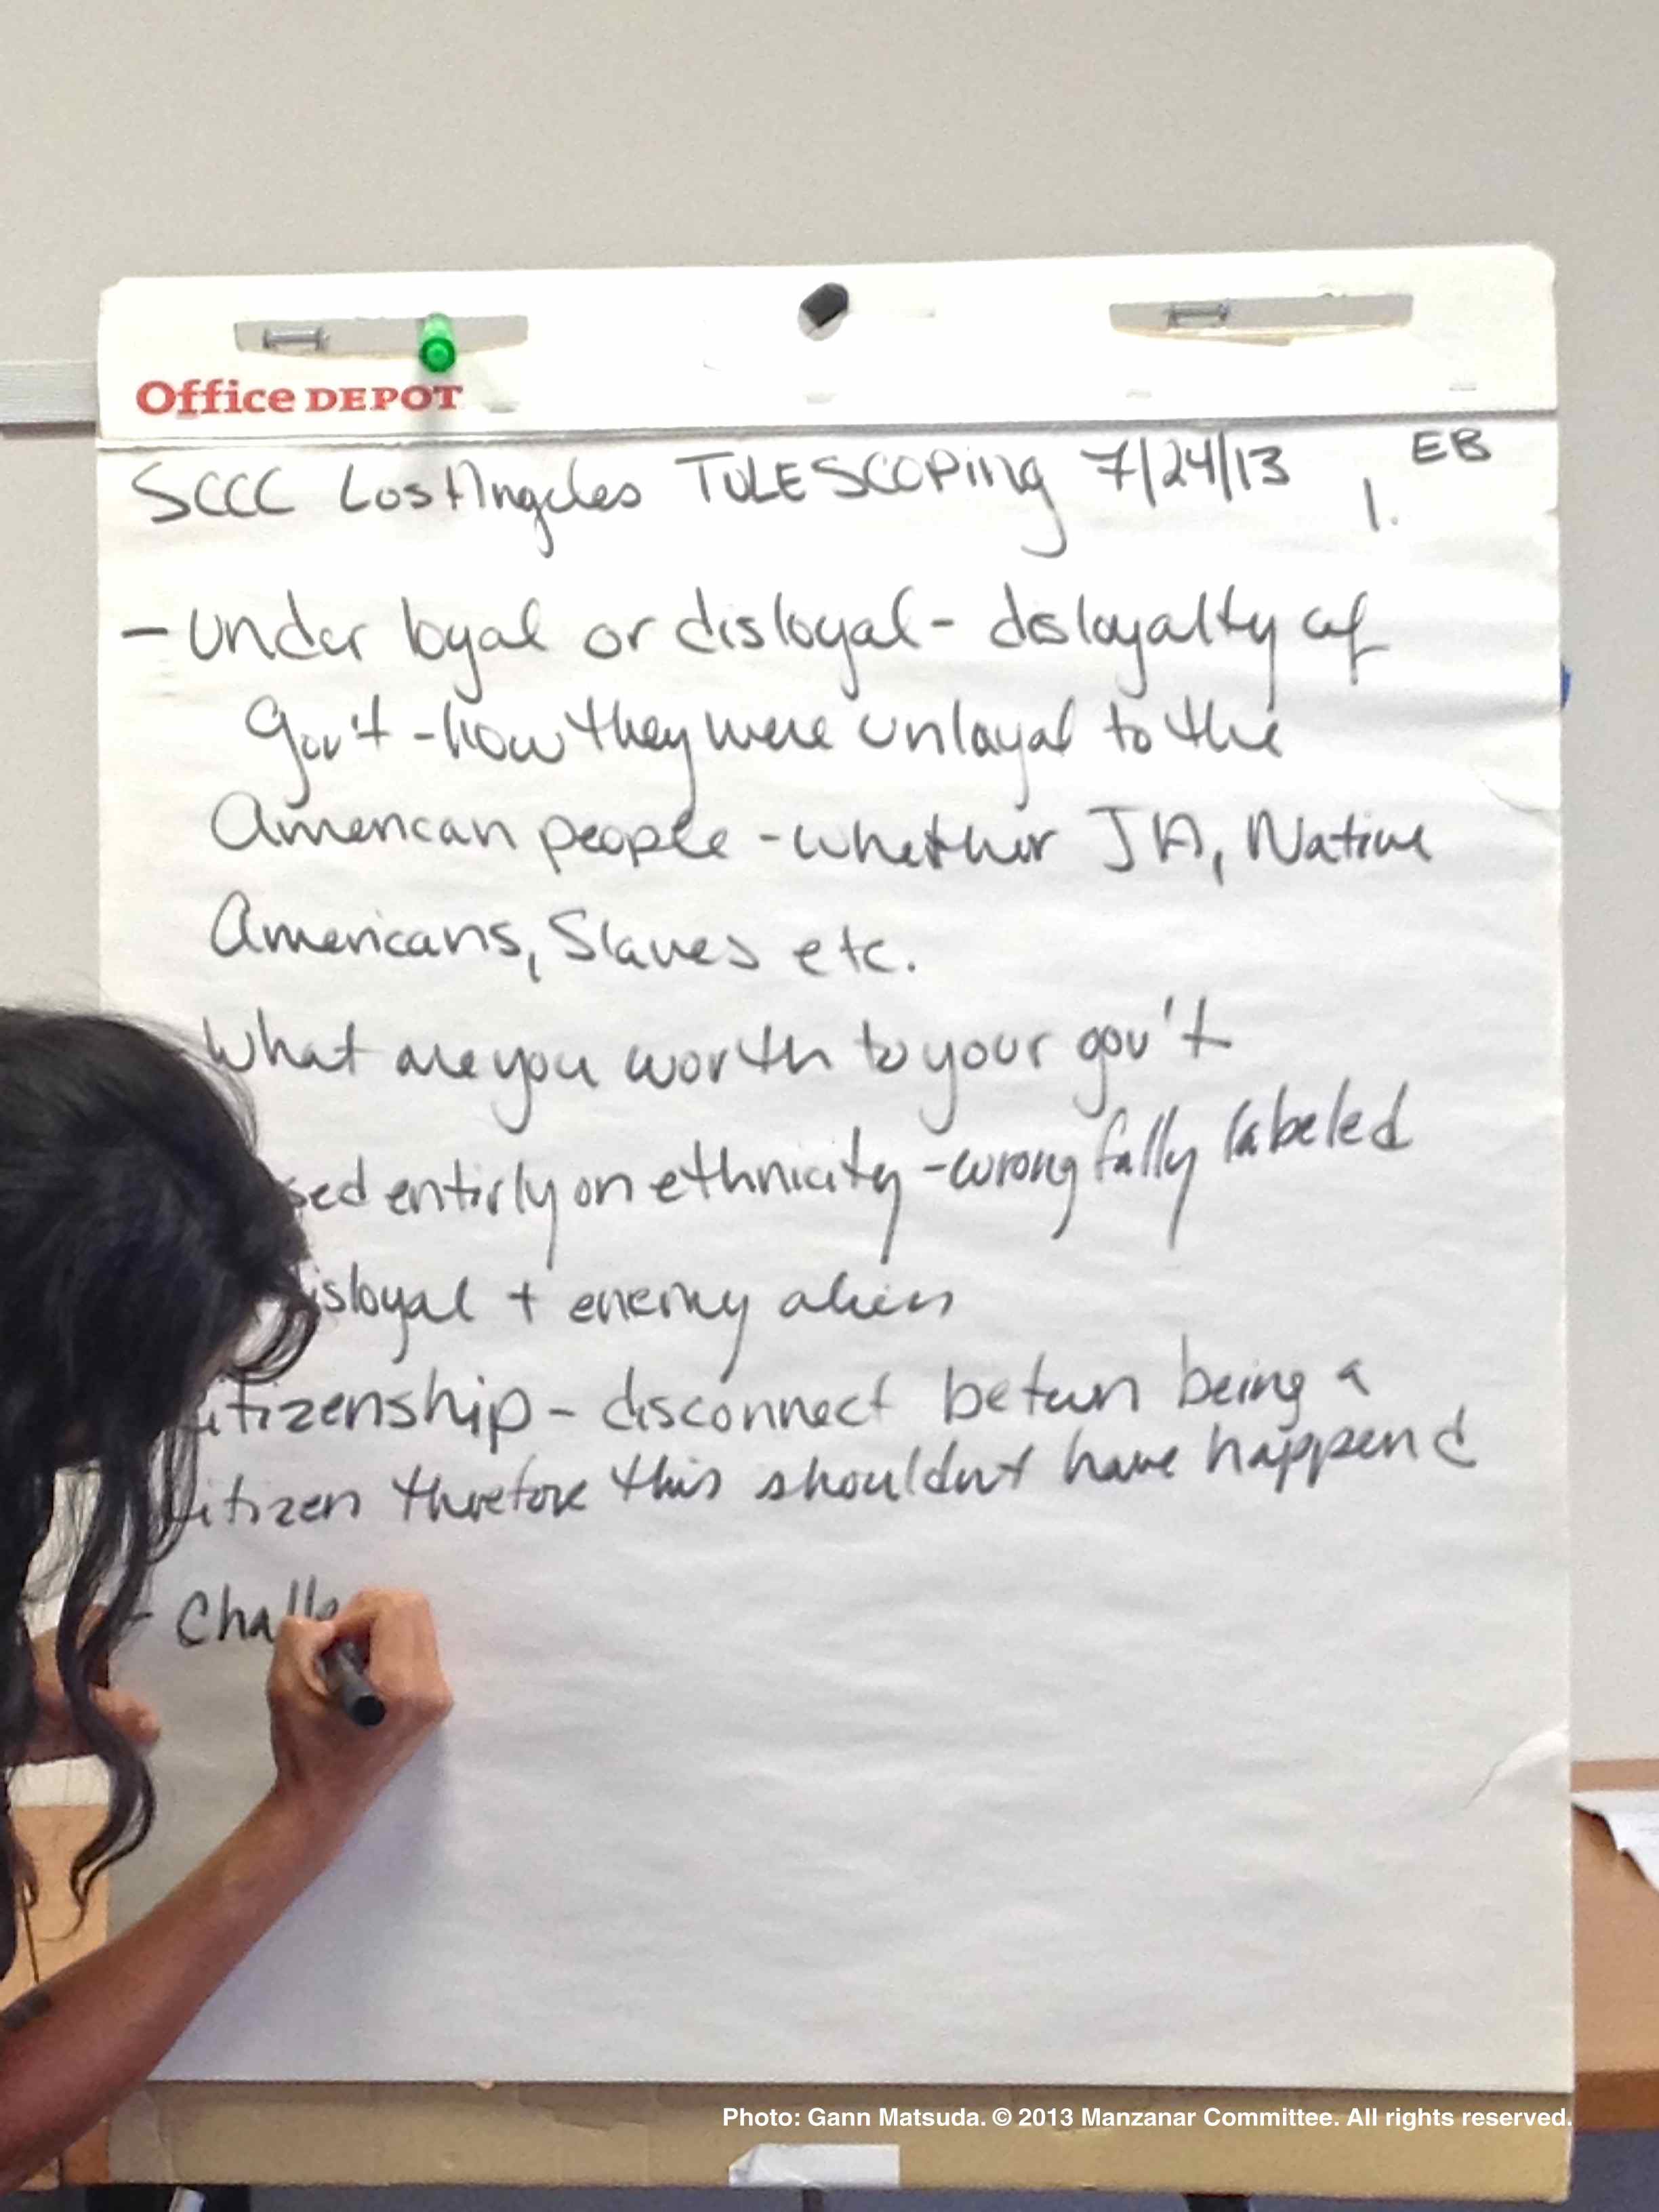 Office DEPOT
SCCC Los Angeles TULESCOPing 7/24/13 1. EB
- Under loyal or disloyal - disloyalty of
Gov't - how they were unloyal to the
American people - whether JA, Native
Americans, Slaves etc.
What are you worth to your gov't
sed entirly on ethnicity - wrongfully labeled
isloyal + enemy alien
itizenship - disconnect betwn being a
itizen therefore this shouldn't have happend
- Challe
Photo: Gann Matsuda. © 2013 Manzanar Committee. All rights reserved.